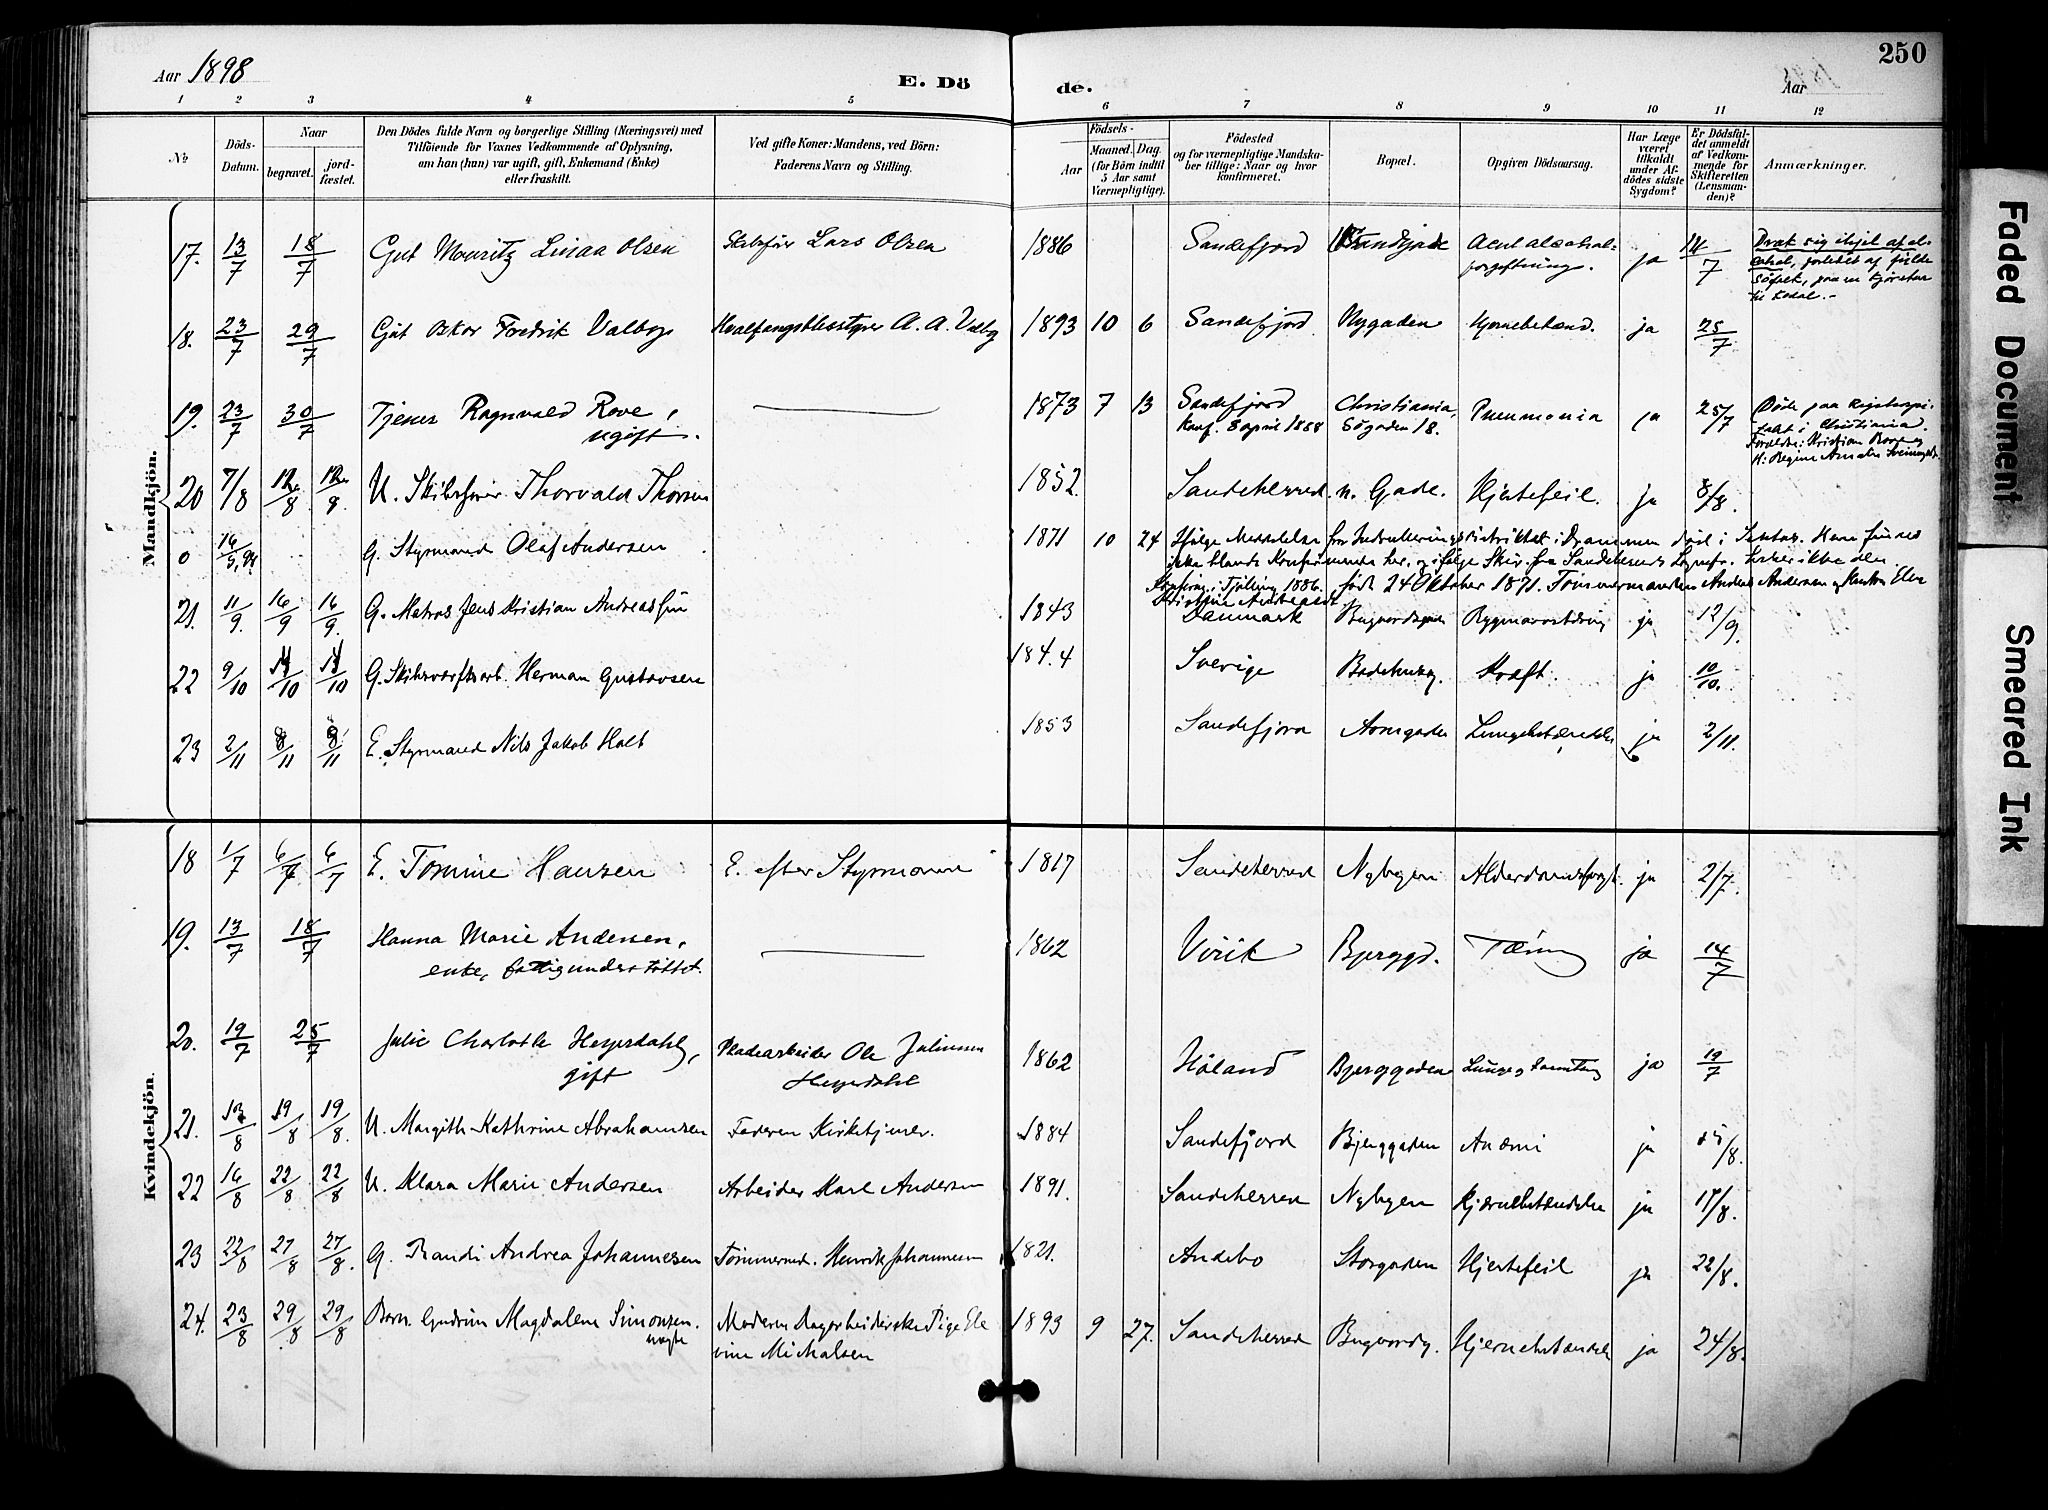 Aar 1898
E. Dö
de.
Aar
250
1 2 3 4 5 6 7 8 9 10 11 12
No
Döds-
Datum.
Naar
begravet.
jord-
fæstet.
Den Dödes fulde Navn og borgerlige Stilling (Næringsvei) med
Tilföiende for Voxnes Vedkommende af Oplysning,
om han (hun) var ugift, gift, Enkemand (Enke)
eller fraskilt.
Ved gifte Koner: Mandens, ved Börn:
Faderens Navn og Stilling.
Födsels-
Aar
Maaned. Dag.
(for Börn indtil
5 Aar samt
Værnepligtige).
Födested
og for værnepligtige Mandska-
ber tillige: Naar og hvor
konfirmeret.
Bopæl.
Opgiven Dödsaarsag.
Har Læge
været
tilkaldt
under Af-
dödes sidste
Sygdom?
Er Dödsfal-
det anmeldt
af Vedkom-
mende for
Skifteretten
(Lensman-
den)?
Anmærkninger.
Mandkjön.
17. 13/7 18/7 Gut Mouritz Linaa Olsen Skibsfører Lars Olsen 1886 Sandefjord ja 14/7
Drak sig ihjel af al-
cohol, forledet af fulde
Søfolk, paa en kjøretur
til Kodal.-
18. 23/7 29/7 Gut Oskar Fredrik Valby Hvalfangstbestyrer A. A. Valby 1893 10 6 Sandefjord Nygaden Hjernebetænd. ja 25/7
19. 23/7 30/7 Tjener Ragnvald Rove, 1873 7 13 Sandefjord Christiania, Pneumonia ja 25/7 Døde paa Rigshospi-
ugift. Konf. 8 april 1888 Søgaden 18. talet i Christiania.
20 7/8 12/8 U. Skibsfører Thorvald Thorsen 1852 Sandeherred n. Gade. Hjertefeil. ja 8/8.
0 G. Styrmand Olaf Andersen 1871 10 24 Ifølge Meddelelse fra Indrulleringsdistriktet i Drammen død i
ikke blandt Konfirmerede her, og ifølge Skr. fra Sandeherreds Sognepr. heller ikke der.
Konfirm. i Tjølling 1886. født 24 Oktober 1871. Tømmermanden Anders Andersen og Hustru
21. 11/9 16/9 16/9. G. Matros Jens Kristian Andreassen 1843 Danmark Rygmarvstæring ja 12/9.
22 9/10 14/10 14/10 G. Skibsværftsarb. Herman Gustavsen 1844 Sverige Badehusg. Kræft. ja 10/10.
23 2/11 8/11 8/11 E. Styrmand Nils Jakob Holt 1853 Sandefjord Lungebetændelse ja 2/11.
Kvindekjön.
18 1/7 6/7 6/7 E. Tomine Hansen E. efter Styrmand 1817 Sandeherred Nybyen ja 2/7.
19. 13/7 18/7 Hanna Marie Andersen, 1862 Virik Bjerggd. Tæring ja 14/7
enke, fattigunderstøttet.
20. 19/7 25/7 Julie Charlotte Heyerdahl, Ole Julinsen 1862 Høland Bjerggaden ja 19/7
gift Heyerdahl
21. 13/8 19/8 19/8. U. Margith Kathrine Abrahamsen Faderen Kirketjener. 1884 Sandefjord Bjerggaden Anæmi ja 15/8.
22 16/8 22/8 22/8 U. Klara Marie Andersen Arbeider Karl Andersen 1891. Sandeherred Nybyen Hjernebetændelse ja 17/8.
23 22/8 27/8 27/8. G. Randi Andrea Johannesen Tømmermd. Henrik Johannesen 1821. Andebo Storgaden Hjertefeil ja 22/8.
24. 23/8 29/8 29/8 Barn. Gudrun Magdalene Simonsen. Moderen Dagarbeiderske Pige Ele 1893 9 27. Sandeherred Hjernebetændelse ja 24/8.
uægte vine Mikalsen
Faded Document
Smeared Ink